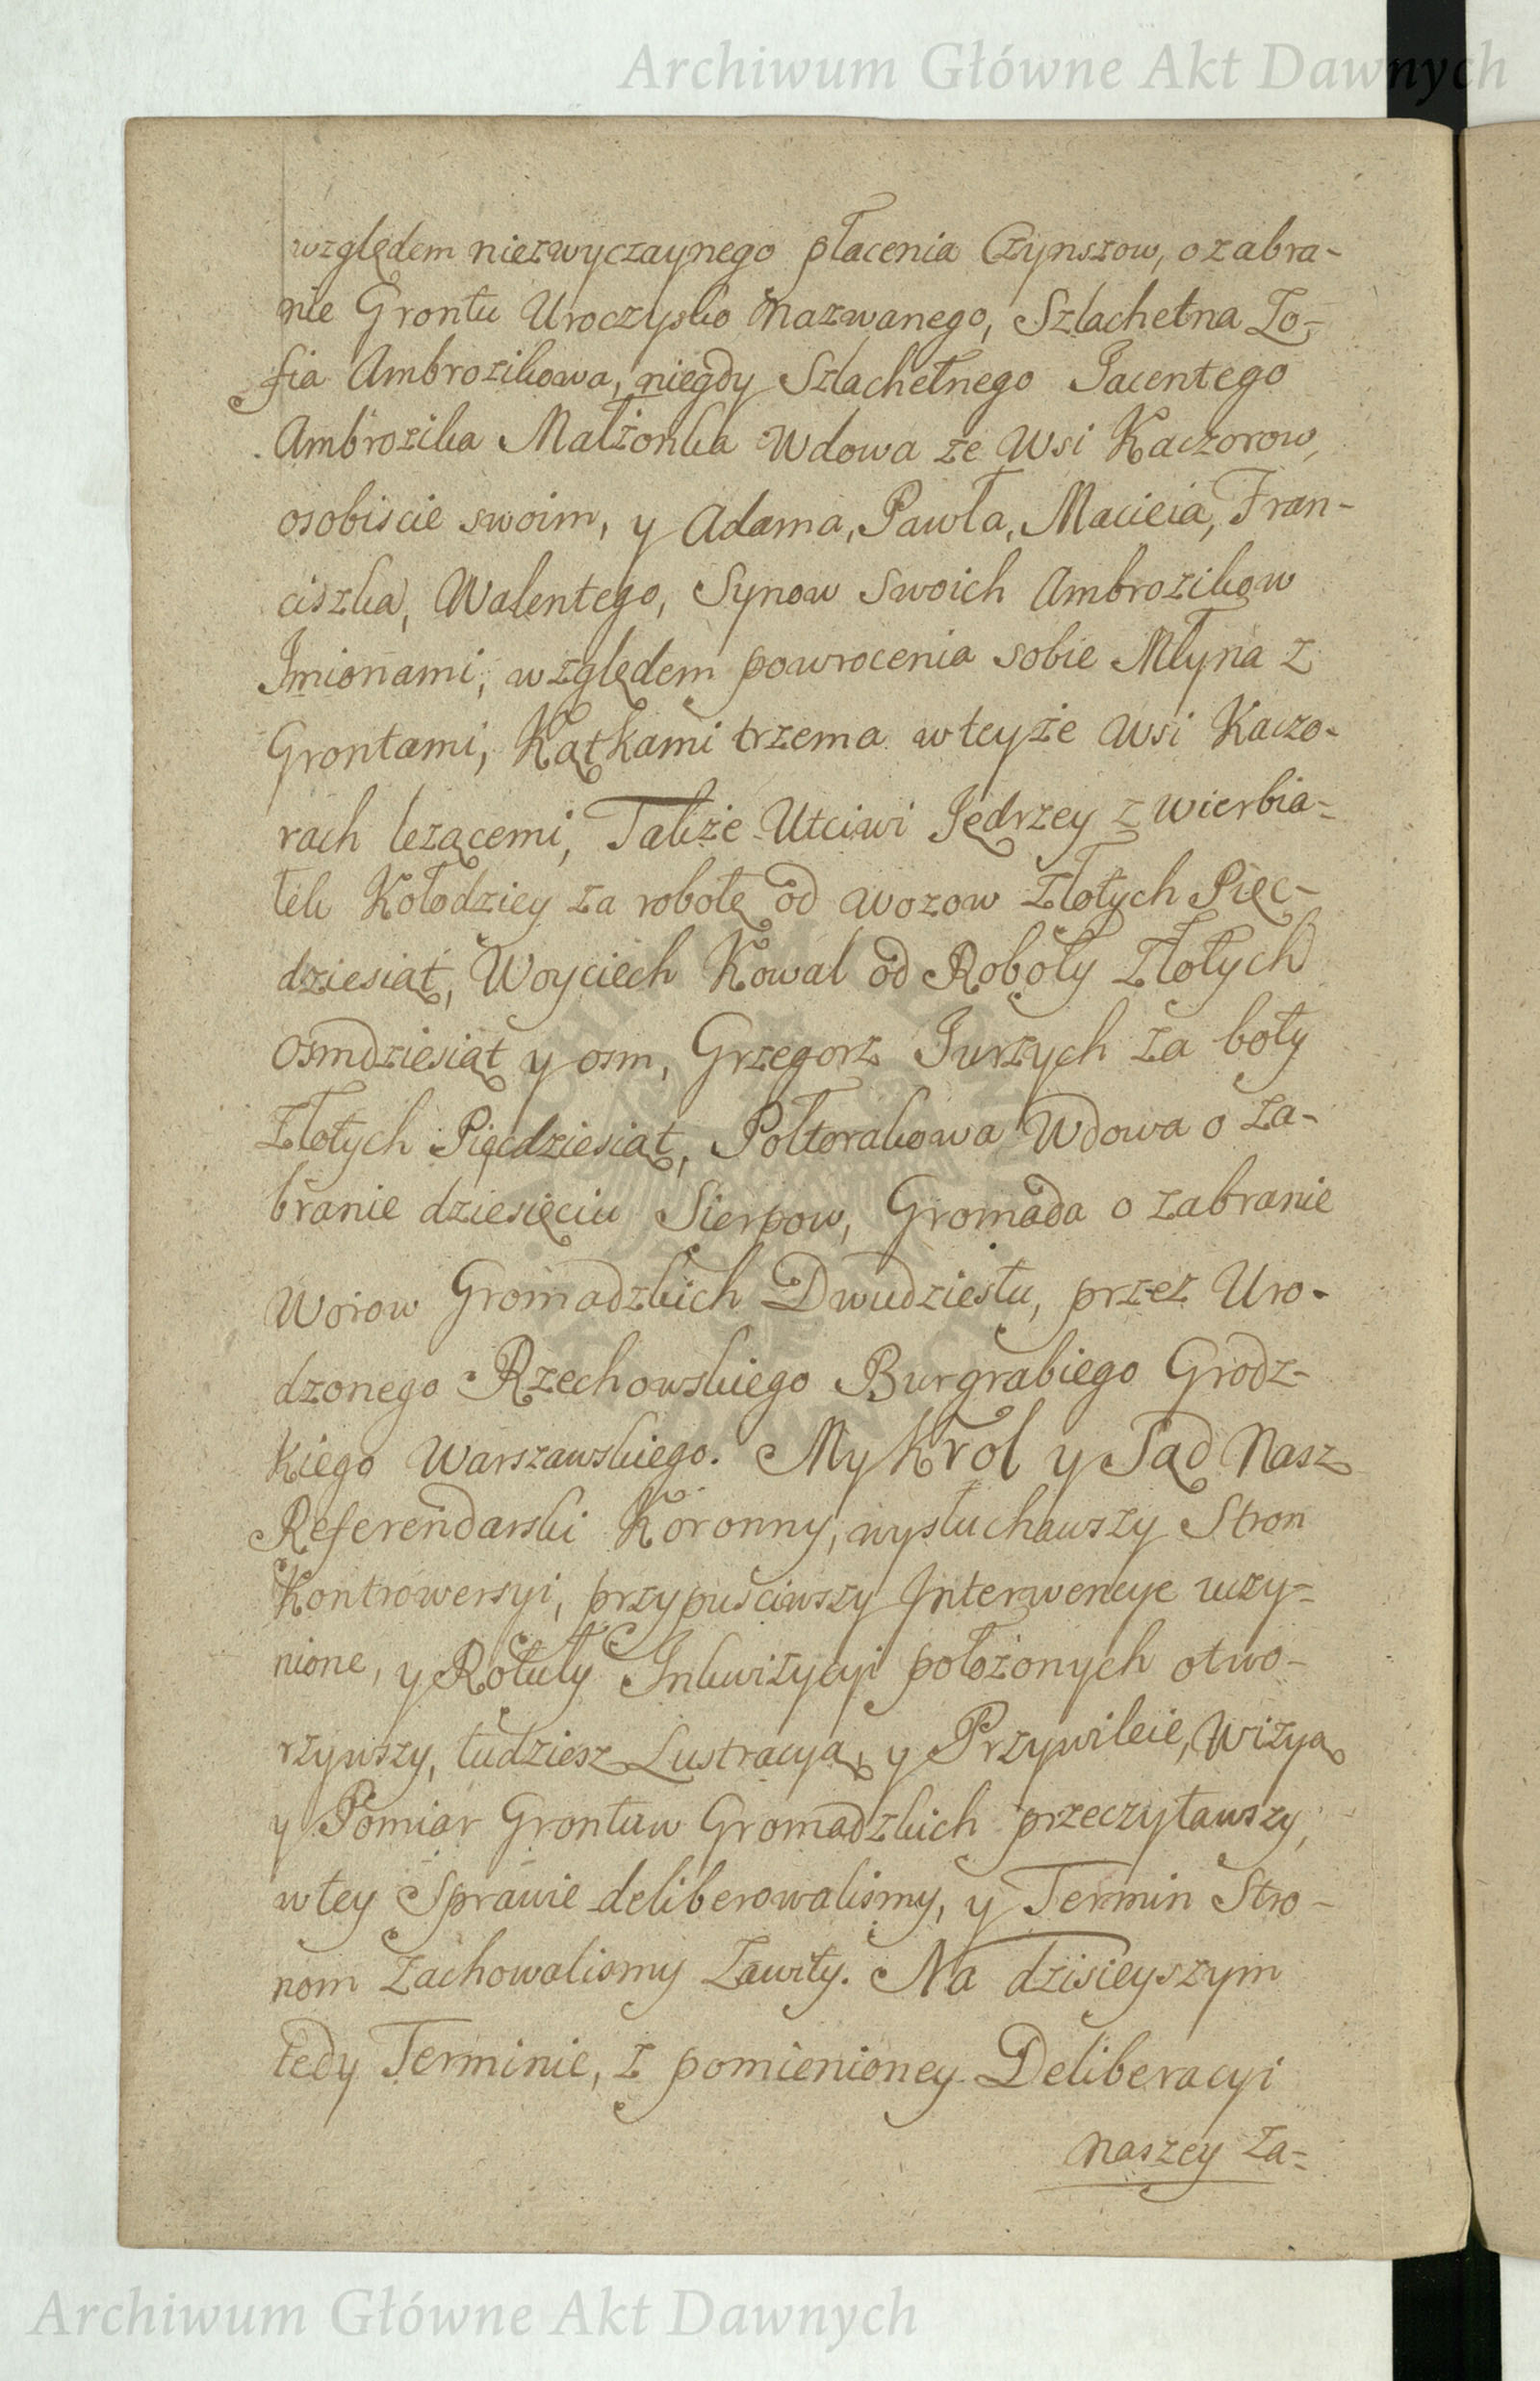 Archiwum Główne Akt Dawnych
względem niezwyczaynego płacenia Czynszow, o zabra-
nie Grontu Uroczysko nazwanego, Szlachetna Zo-
fia Ambrozikowa, niegdy Szlachetnego Jacentego
Ambrozika Małżonka Wdowa ze Wsi Kaczorow,
osobiscie swoim, y Adama, Pawła, Macieia, Fran-
ciszka, Walentego, Synow Swoich Ambrozikow
Imionami, względem powrocenia sobie Młyna z
Grontami, Kątkami trzema w teyże Wsi Kaczo-
rach leżącemi, Także Utciwi Jędrzey z Wierbia-
tek Kołodziey za robotę od Wozow Złotych Pięc-
dziesiąt, Woyciech Kowal od Roboty Złotych
Osmdziesiąt y osm, Grzegorz Jurzych za boty
Złotych Pięcdziesiąt, Połtorakowa Wdowa o za-
branie dziesięciu Sierpow, Gromada o zabranie
Worow Gromadzkich Dwudziestu, przez Uro-
dzonego Rzechowskiego Burgrabiego Grodz-
kiego Warszawskiego. My Krol y Sąd Nasz
Referendarski Koronny, wysłuchawszy Stron
Kontrowersyi, przypusciwszy Interwencye uczy-
nione, y Rotuły Inkwizycyi położonych otwo-
rzywszy, tudziesz Lustracyą, y Przywileie, Wizyą
y Pomiar Grontuw Gromadzkich przeczytawszy,
w tey Sprawie deliberowalismy, y Termin Stro-
nom zachowalismy Zawity. Na dzisieyszym
tedy Terminie, z pomienioney Deliberacyi
naszey za-
Archiwum Główne Akt Dawnych